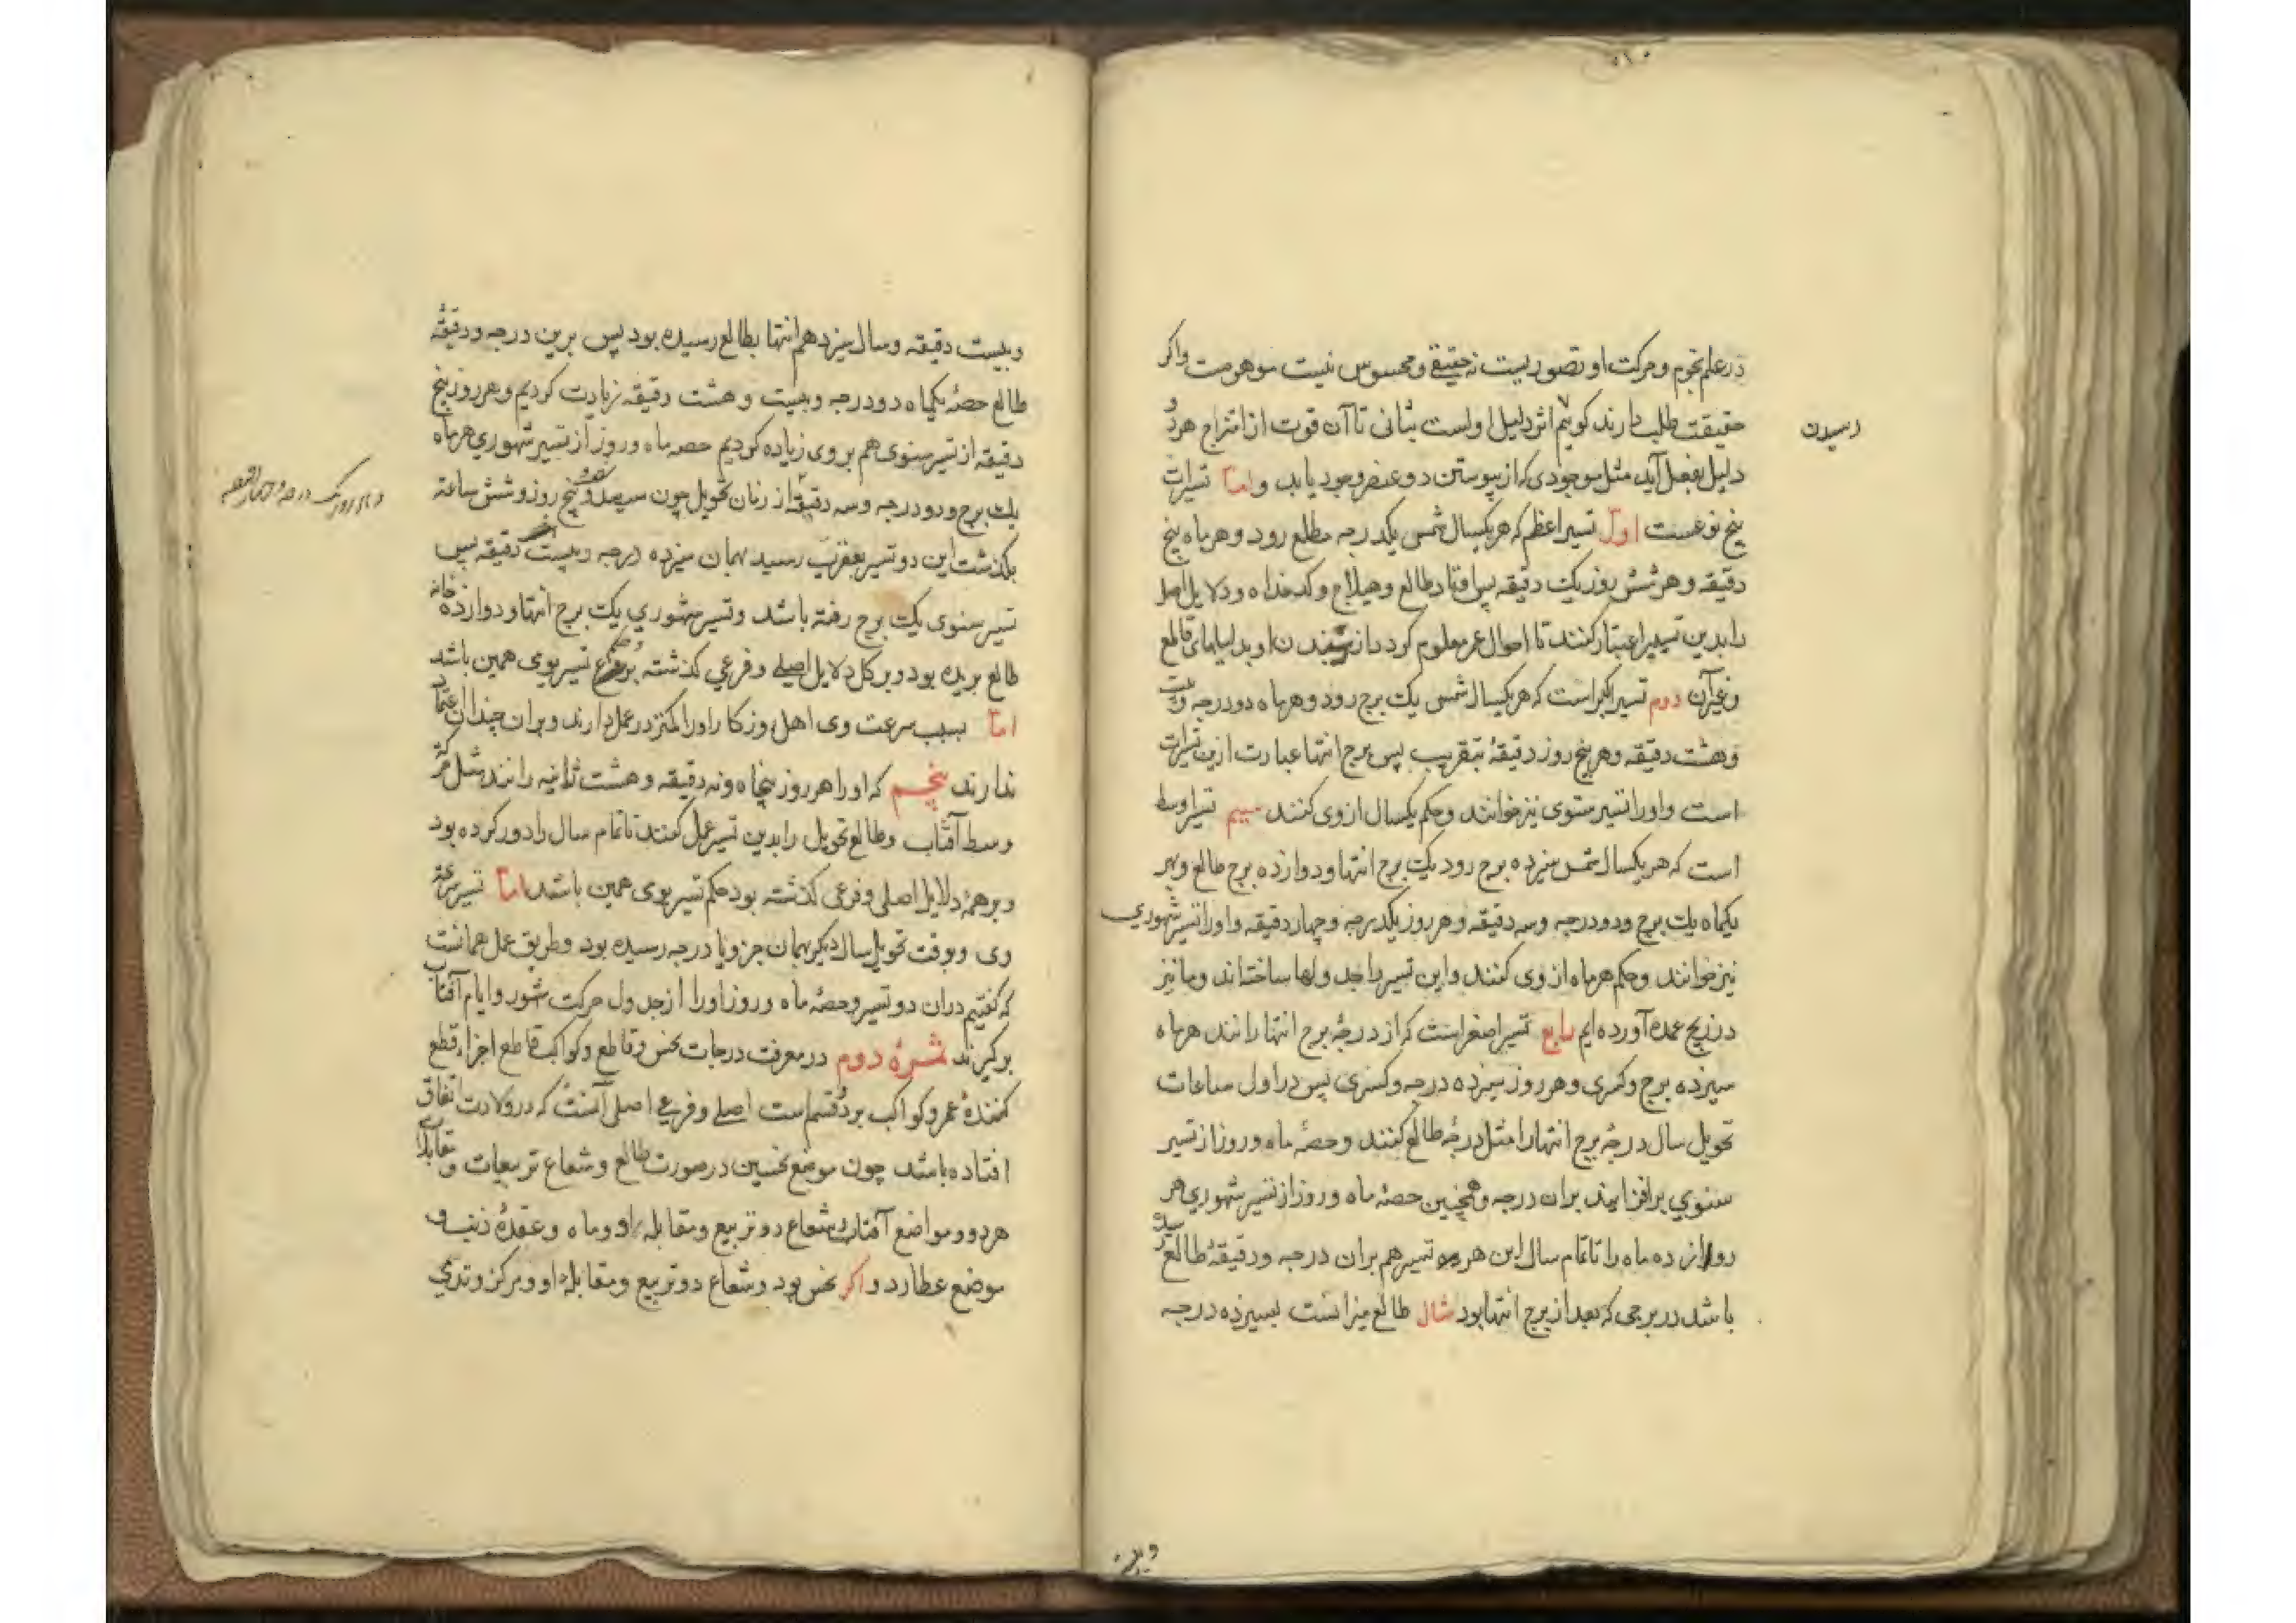 در علم نجوم و حرکت او تصوریست نه حقیقی و محسوس نیست موهومست واکر
حقیقت طلب دارند کوییم اثر دلیل اولست بثانی تا آن قوت از امتزاج هر دو
رسیدن
دلیل بفعل آید مثل موجودی که از پیوستن دو عنصر وجود یابد و اما تسیرات
پنج نوعست اول تسیر اعظم که هر یکسال شمسی یکدرجه مطلع رود و هر ماه پنج
دقیقه و هر شش روز یک دقیقه پس افتاد طالع و هیلاج و کدخداه و دلایل اصل
را بدین تسییر اعتبار کنند تا احوال عمر معلوم کردد از او بدلیلهای قاطع
و غیر آن دوم تسیر اکبر است که هر یکسال شمسی یک برج رود و هر ماه دو درجه و بیست
و هشت دقیقه و هر پنج روز دقیقهٔ بتقریب پس برج انتها عبارت ازین تسیرات
است و او را تسیر سنوی نیز خوانند و حکم یکسال از وی کنند سیم تسیر اوسط
است که هر یکسال شمسی سیزده برج رود یک برج انتها و دوازده برج طالع و بهر
یکماه یک برج و دو درجه و سه دقیقه و هر روز یکدرجه و چهار دقیقه و او را تسیر شهوری
نیز خوانند و حکم هر ماه از وی کنند و این تسیر را جدولها ساخته اند و ما نیز
در زیج عمده آورده ایم رابع تسیر اصغر است که از درجهٔ برج انتها رانند هر ماه
سیزده برج و کسری و هر روز سیزده درجه و کسری پس در اول ساعات
تحویل سال درجهٔ برج انتها را مثل درجهٔ طالع کنند و حصهٔ ماه و روز از تسیر
سنوی بر افزایند بران درجه و همچنین حصهٔ ماه و روز از تسیر شهوری هر
دوازده ماه را تا تمام سال این هر دو تسیر هم بران درجه و دقیقهٔ طالع رسیده
باشد در برجی که بعد از برج انتها بود مثال طالع میزانست بسیزده درجه
و بیست دقیقه و سال سیزدهم انتها بطالع رسیده بود پس برین درجه و دقیقهٔ
طالع حصهٔ یکماه دو درجه و بیست و هشت دقیقه زیادت کردیم و هر روز پنج
دقیقه از تسیر سنوی هم بر وی زیاده کردیم حصه ماه و روز از تسیر شهوری هر ماه
یک برج و دو درجه و سه دقیقه از زمان تحویل چون سیصد و شصت و پنج روز و شش ساعته
بکذشت این دو تسیر بعقرب رسید بهمان سیزده درجه و بیست دقیقه پس
تسیر سنوی یک برج رفته باشد و تسیر شهوری یک برج انتها و دوازده خانه
طالع بریده بود و بر کل دلایل اصلی و فرعی کذشته بود حکم تسیر بوی همین باشد
اما بسبب سرعت وی اهل روزکار او را کمتر در عمل دارند و بران چندان اعتماد
ندارند پنجم که او را هر روز پنجاه و نه دقیقه و هشت ثانیه رانند مثل حرکة
وسط آفتاب و طالع تحویل را بدین تسیر عمل کنند تا تمام سال را دور کرده بود
و بر همهٔ دلایل اصلی و فرعی کذشته بود حکم تسیر بوی همین باشد اما تسیر
وی و بوقت تحویل سال دیکر بهمان جزو یا درجه رسیده بود و طریق عمل همانست
که کفتیم دران دو تسیر و حصهٔ ماه و روز او را از جدول حرکت شهور و ایام آفتاب
برکیرند ثمرهٔ دوم در معرفت درجات نحس و قاطع و کواکب قاطع اجزاء قطع
کنندهٔ عمر و کواکب بر دو قسم است اصلی و فرعی اصلی آنست که در ولادت اتفاق
افتاده باشد چون موضع نحسین در صورت طالع و شعاع تربیعات و مقابلهٔ
هر دو و مواضع آفتاب و شعاع دو تربیع و مقابلهٔ او و ماه و عقدهٔ ذنب و
موضع عطارد و اکر نحس بود و شعاع دو تربیع و مقابلهٔ او و مرکز وتدی